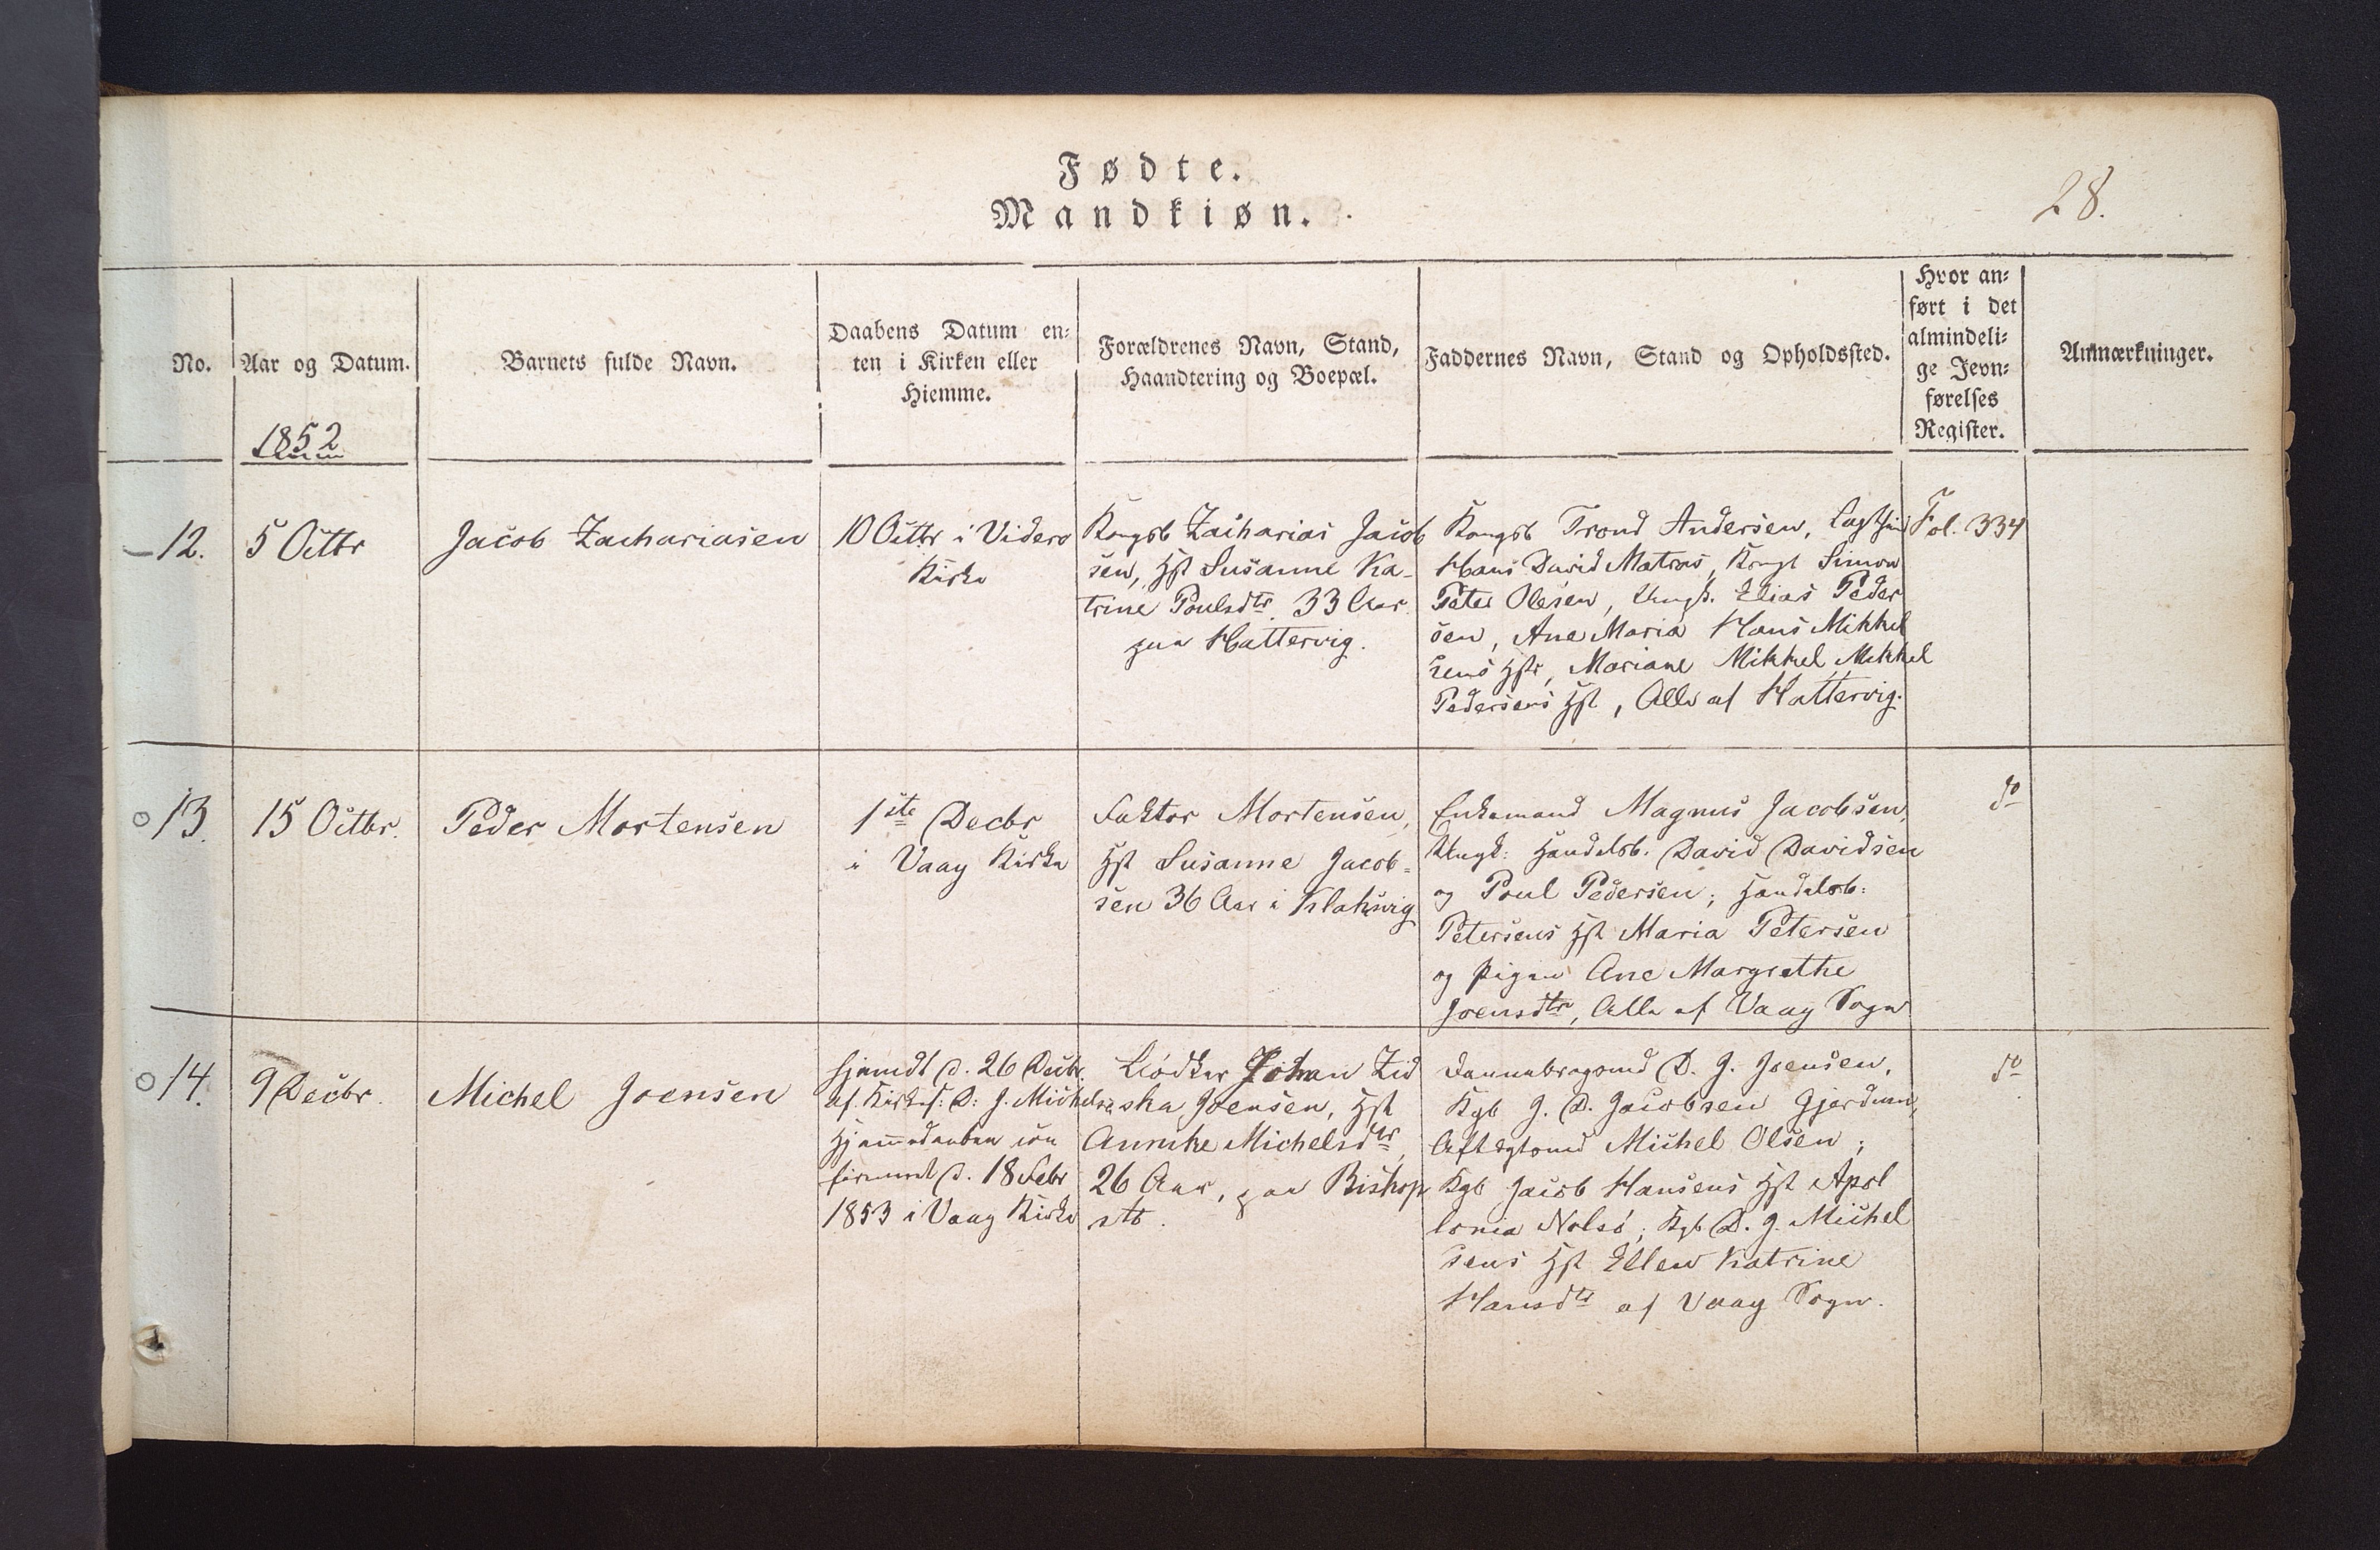 Fødte.
Mandkiøn.
28.
No.
Aar og Datum.
1852
Barnets fulde Navn.
Daabens Datum en-
ten i Kirken eller
Hiemme.
Forældrenes Navn, Stand,
Haandtering og Boepæl.
Faddernes Navn, Stand og Opholdssted.
Hvor an-
ført i det
almindeli-
ge Jevn-
førelses
Register.
Anmærkninger.
12.
5 Octbr
Jacob Zachariasen
10 Octbr i Viderø
Kirke
Kongsb Zacharias Jacob
sen, Hst Susanne Ka-
trine Poulsdtr 33 Aar
paa Hattervig.
Kongsb Trond Andersen,
Hans David Matras, Kongs Simon
Peter Olesen, Ungk. Elias Peder
sen, Ane Maria Hans Mikkel
sens Hstr, Mariane Mikkel Mikkel
Pedersens Hst, Alle af Hattervig.
Fol. 334
13.
15 Octbr.
Peder Mortensen
1ste Decbr
i Vaag Kirke
Faktor Mortensen,
Hst Susanne Jacob-
sen 36 Aar i Klaksvig
Enkemand Magnus Jacobsen,
Ungk: Handelsb. David Davidsen
og Poul Pedersen; Handelsb:
Petersens Hst Maria Petersen
og pigen Ane Margrethe
Joensdtr, Alle af Vaag Sogn
do
14.
9 Decbr.
Michel Joensen
Hjemdt d. 26 Decbr.
af Kirkes: D: J. Michelsen
Hjemmedaaben con
firmeret d. 18 Febr
1853 i Vaag Kirke
Bødker Johan Zid
ska Joensen, Hst
Annike Michelsdtr,
26 Aar, paa Biskop
stö.
Dannebrogsmd D. J. Joensen,
Kgb J. D. Jacobsen Gjerdum,
Aftægtsmd Michel Olsen;
Kgb Jacob Hansens Hst Apol
lonia Nolsö; Kgb D. J. Michel
sens Hst Ellen Katrine
Hansdtr af Vaag Sogn.
do